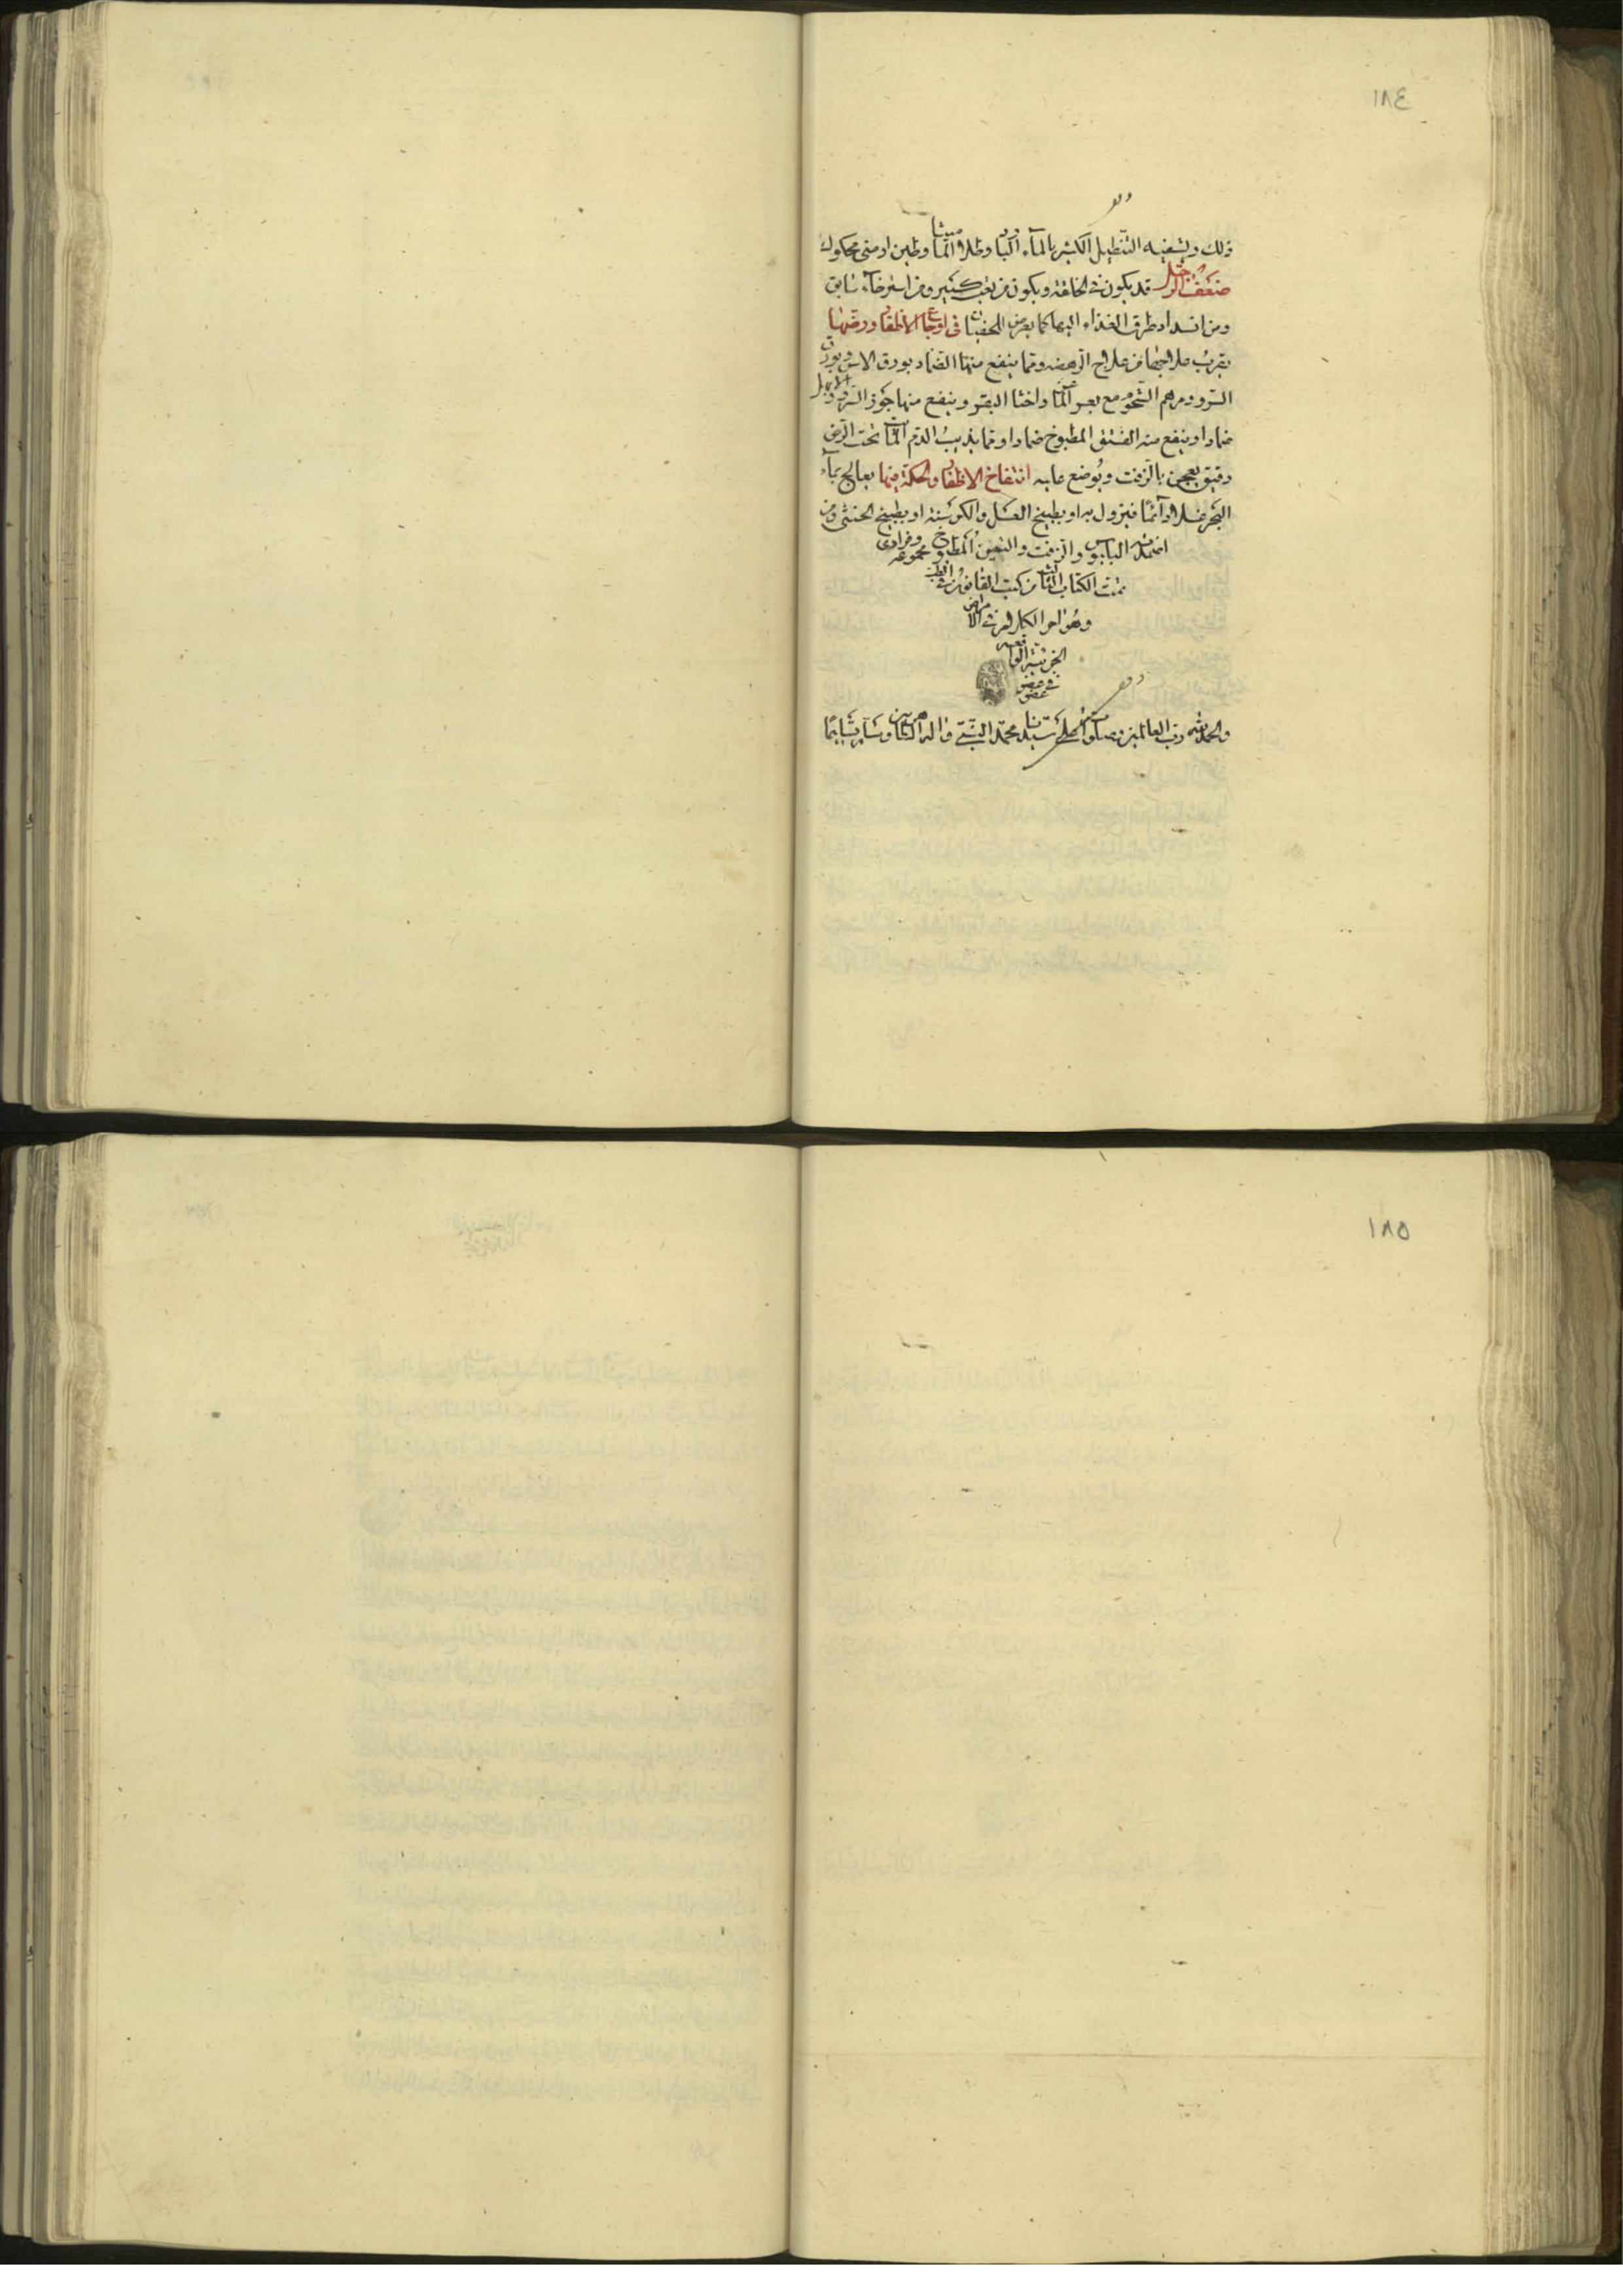 ١٨٤
ذلك ويشفيه التنطيل الكثير بالماء البارد وطلا الماميثا وطين ارمنى محكوك
ضعف الرجل قد يكون فى الخلقة ويكون من تعب كثير ومن استرخاء سابق
ومن انسداد طرق الغذاء اليها كما يعرض للخصيان فى اوجاع الاظفار ورضها
يقرب علاجها من علاج الرهصة ومما ينفع منها الضماد بورق الاس وبورق
السرو ومرهم الشحوم مع بعر الماعز واخثا البقر وينفع منها جوز السرو والابهل
ضمادا وينفع منه الفستق المطبوخ ضمادا ومما يذيب الدم المائت تحت الرض
دقيق يعجن بالزفت ويوضع عليه انتفاخ الاظفار والحكة فيها يعالج بماء
البحر غسلا دائما فيزول به او بطبيخ العدس والكرسنة او بطبيخ الخنثى ومن
اضمدته البلبوس والزفت والتين المطبوخ مجموعة وفرادى
تمت الكتاب الثالث من كتب القانون فى الطب
وهو اخر الكلام فى الامراض
الجزئية الواقعة
فى عضو عضو
والحمد لله رب العالمين وصلواته على سيدنا محمد النبى واله الطاهرين وسلم تسليما
١٨٥